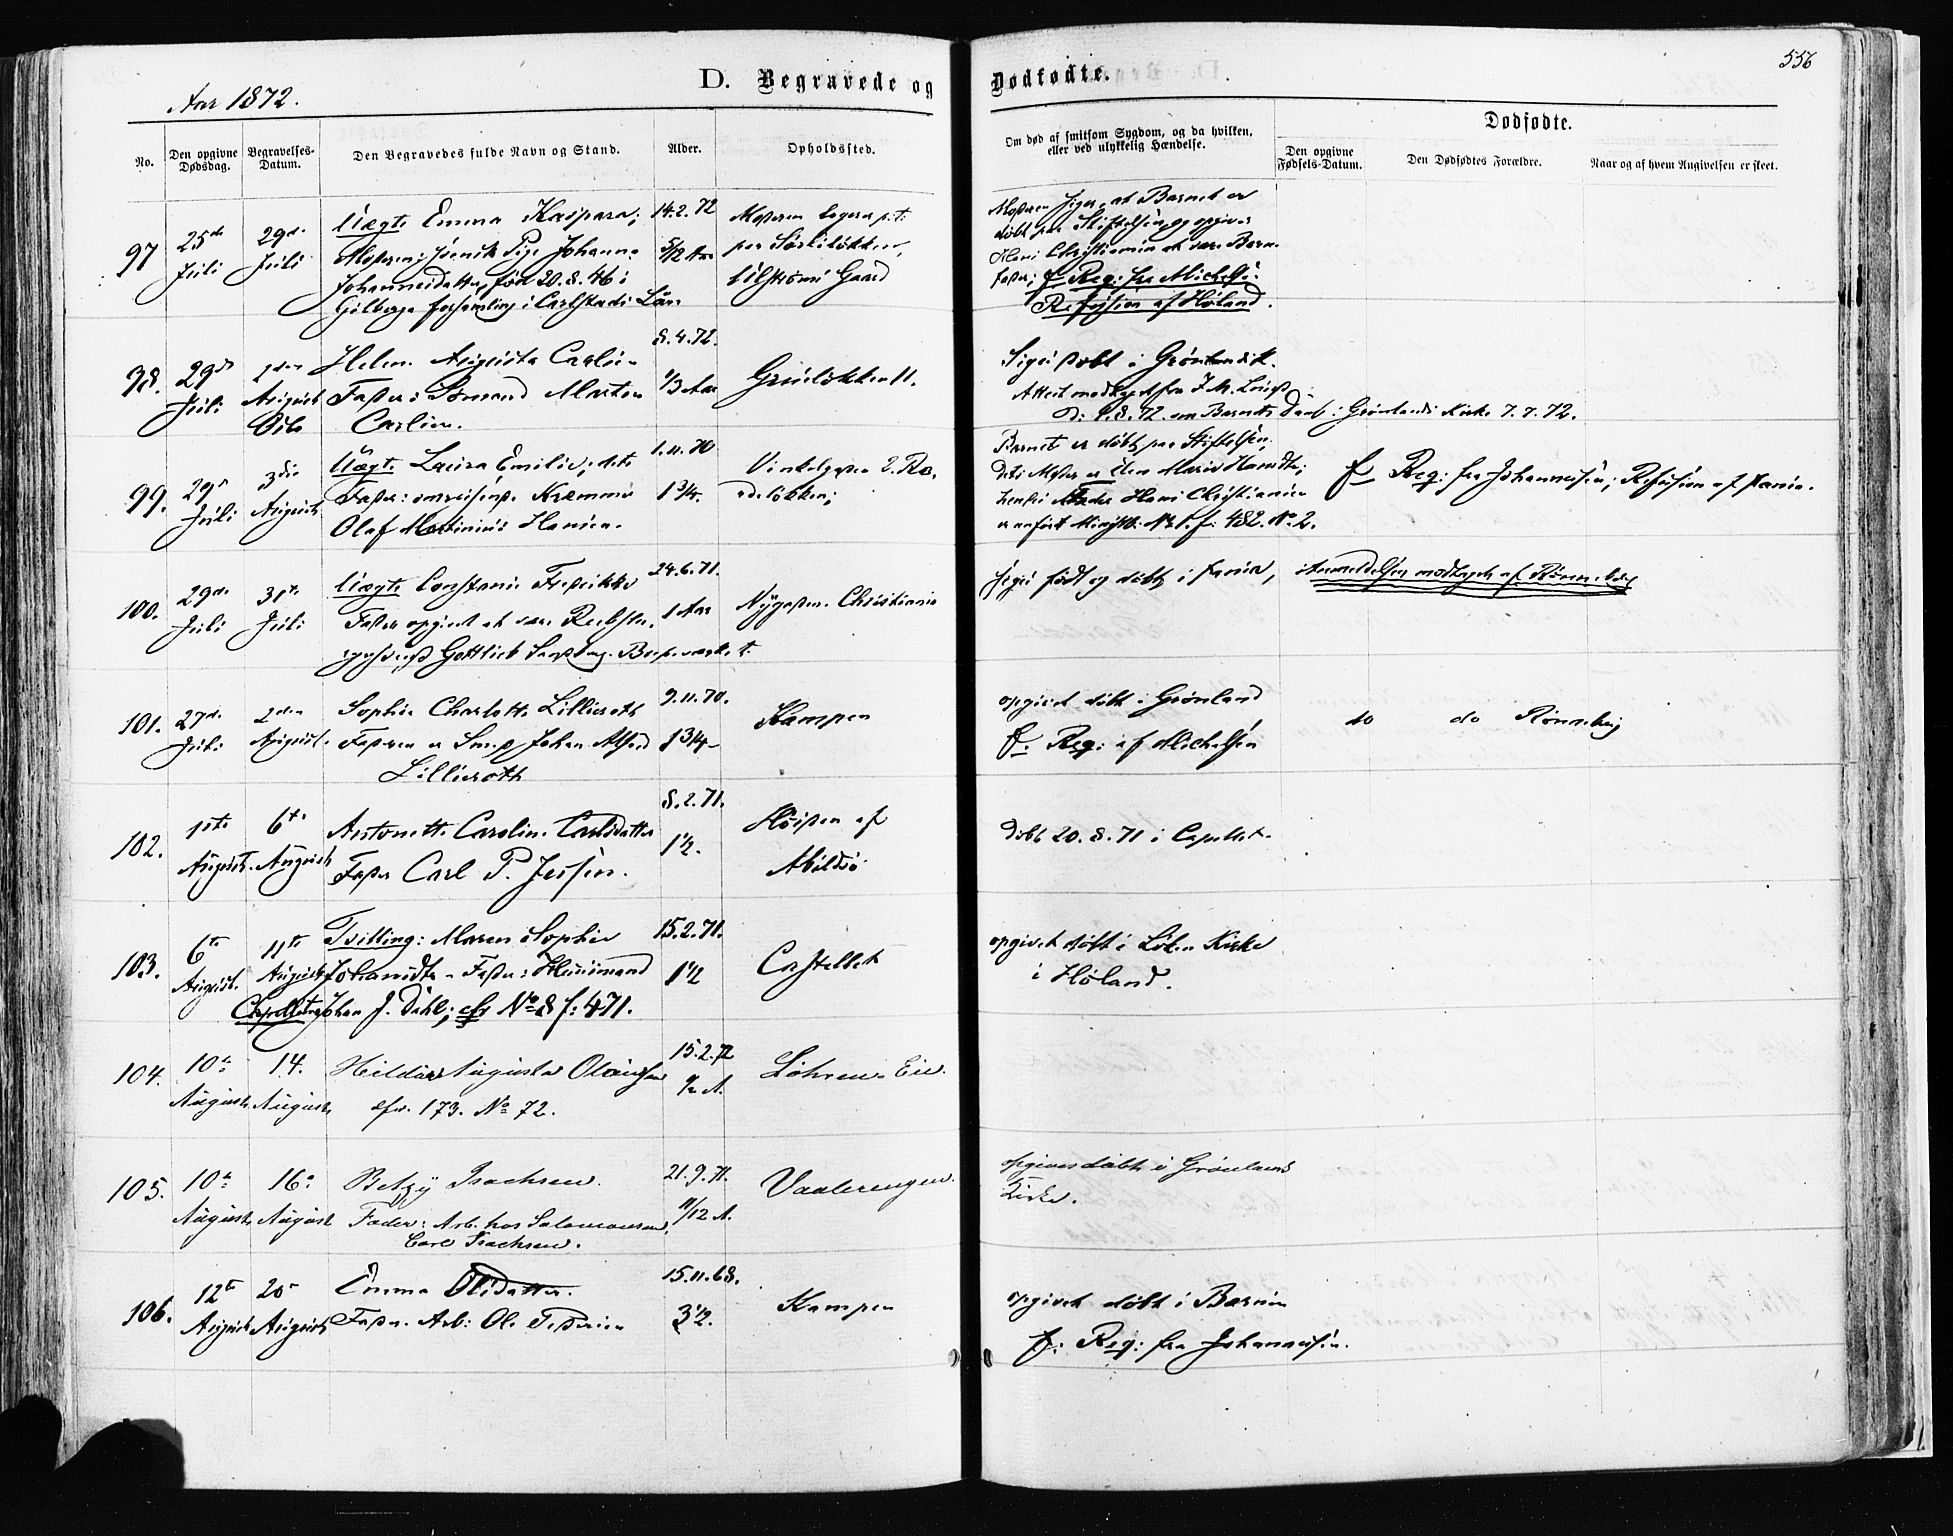 556
Aar 1872.
D. Begravede og Dødfødte.
Dødfødte.
No.
Den opgivne Dødsdag.
Begravelses-Datum.
Den Begravedes fulde Navn og Stand.
Alder.
Opholdssted.
Om død af smitsom Sygdom, og da hvilken,
eller ved ulykkelig Hændelse.
Den opgivne Fødsels-Datum.
Den Dødfødtes Forældre.
Naar og af hvem Angivelsen er skeet.
97
25de Juli
29de Juli
Uægte Emma Kaspara;
Moderen: svensk Pige Johanna
Johannesdatter, født 20.8.46 i
Gilberga forsamling i Carlstads Län
14.2.72
5/12 Aar
Moderen
paa
Gaard
Moderen siger, at Barnet er
døbt paa Stiftelsen, og opgiver
Christiansen at være Barn-
fader; f. Reg: fra Michelsen
Refusion af Høland.
98.
29de Juli
2den August Oslo
Helen Augusta Carlsen
Fader: Sømand Morten
Carlsen.
8.4.72.
1/3 Aar
Grünløkken 11.
Siges døbt i Grønlands K.
Attest modtaget fra
D: 6.8.72. om Barnets Daab i Grønlands Kirke 7.7.72.
99.
29de Juli
3die August
Uægte Laura Emilie; dets
Fader:
Olaf Martinius Hansen.
1.11.70
1 3/4.
Vinkelgaden 2. Ro-
deløkken;
Barnet er døbt paa Stiftelsen,
dets Moder er Elen Marie
Hans Christiansen
er anført Minist: No 1. f: 482. No 2.
f. Reg: fra Johannesen; Refusion af
100.
29de Juli
31te Juli
Uægte Constance Fredrikke
Fader opgivet at være
Gottlieb
24.6.71.
1 Aar
Nygaden Christiania
siges født og døbt i
Anmeldelsen modtaget af Rønneberg
101.
27de Juli
2den August.
Sophie Charlotte Lillieroth
Faderen er Smed Johan Alfred
Lillieroth
9.11.70.
1 3/4
Kampen
opgivet døbt i Grønland
f. Reg: af Michelsen
do do Rønneberg
102.
1ste August.
6te August
Antonette Caroline Carlsdatter
Fader Carl P. Jessen.
8.2.71.
1 1/2.
Abildsø
Døbt 20.8.71 i Capellet.
103.
6te August.
11te August
Capellet
Tvilling: Maren Sophie
Johansdtr. Fader: Huusmand
Johan J. Dahl; cfr No 8 f: 471.
15.2.71.
1 1/2
Castellet
opgivet døbt i Löken Kirke
i Høland.
104.
10de August
14. August
Hilda Augusta Olausen
cfr. 173. No 72.
15.2.72
1/2 A.
Lohren Eie.
105.
10de August
16. August
Betzy Isachsen.
Fader: Arb. hos Salomonsen,
Carl Isachsen.
21.9.71.
11/12 A.
Vaalerengen.
opgives døbt i Grønlands
Kirke.
106.
12te August
20de August
Emma Olsdatter.
Fader. Arb: Ole Pedersen
15.11.68.
3 1/2.
Kampen
opgivet døbt i Bærum
f: Reg: fra Johannesen.